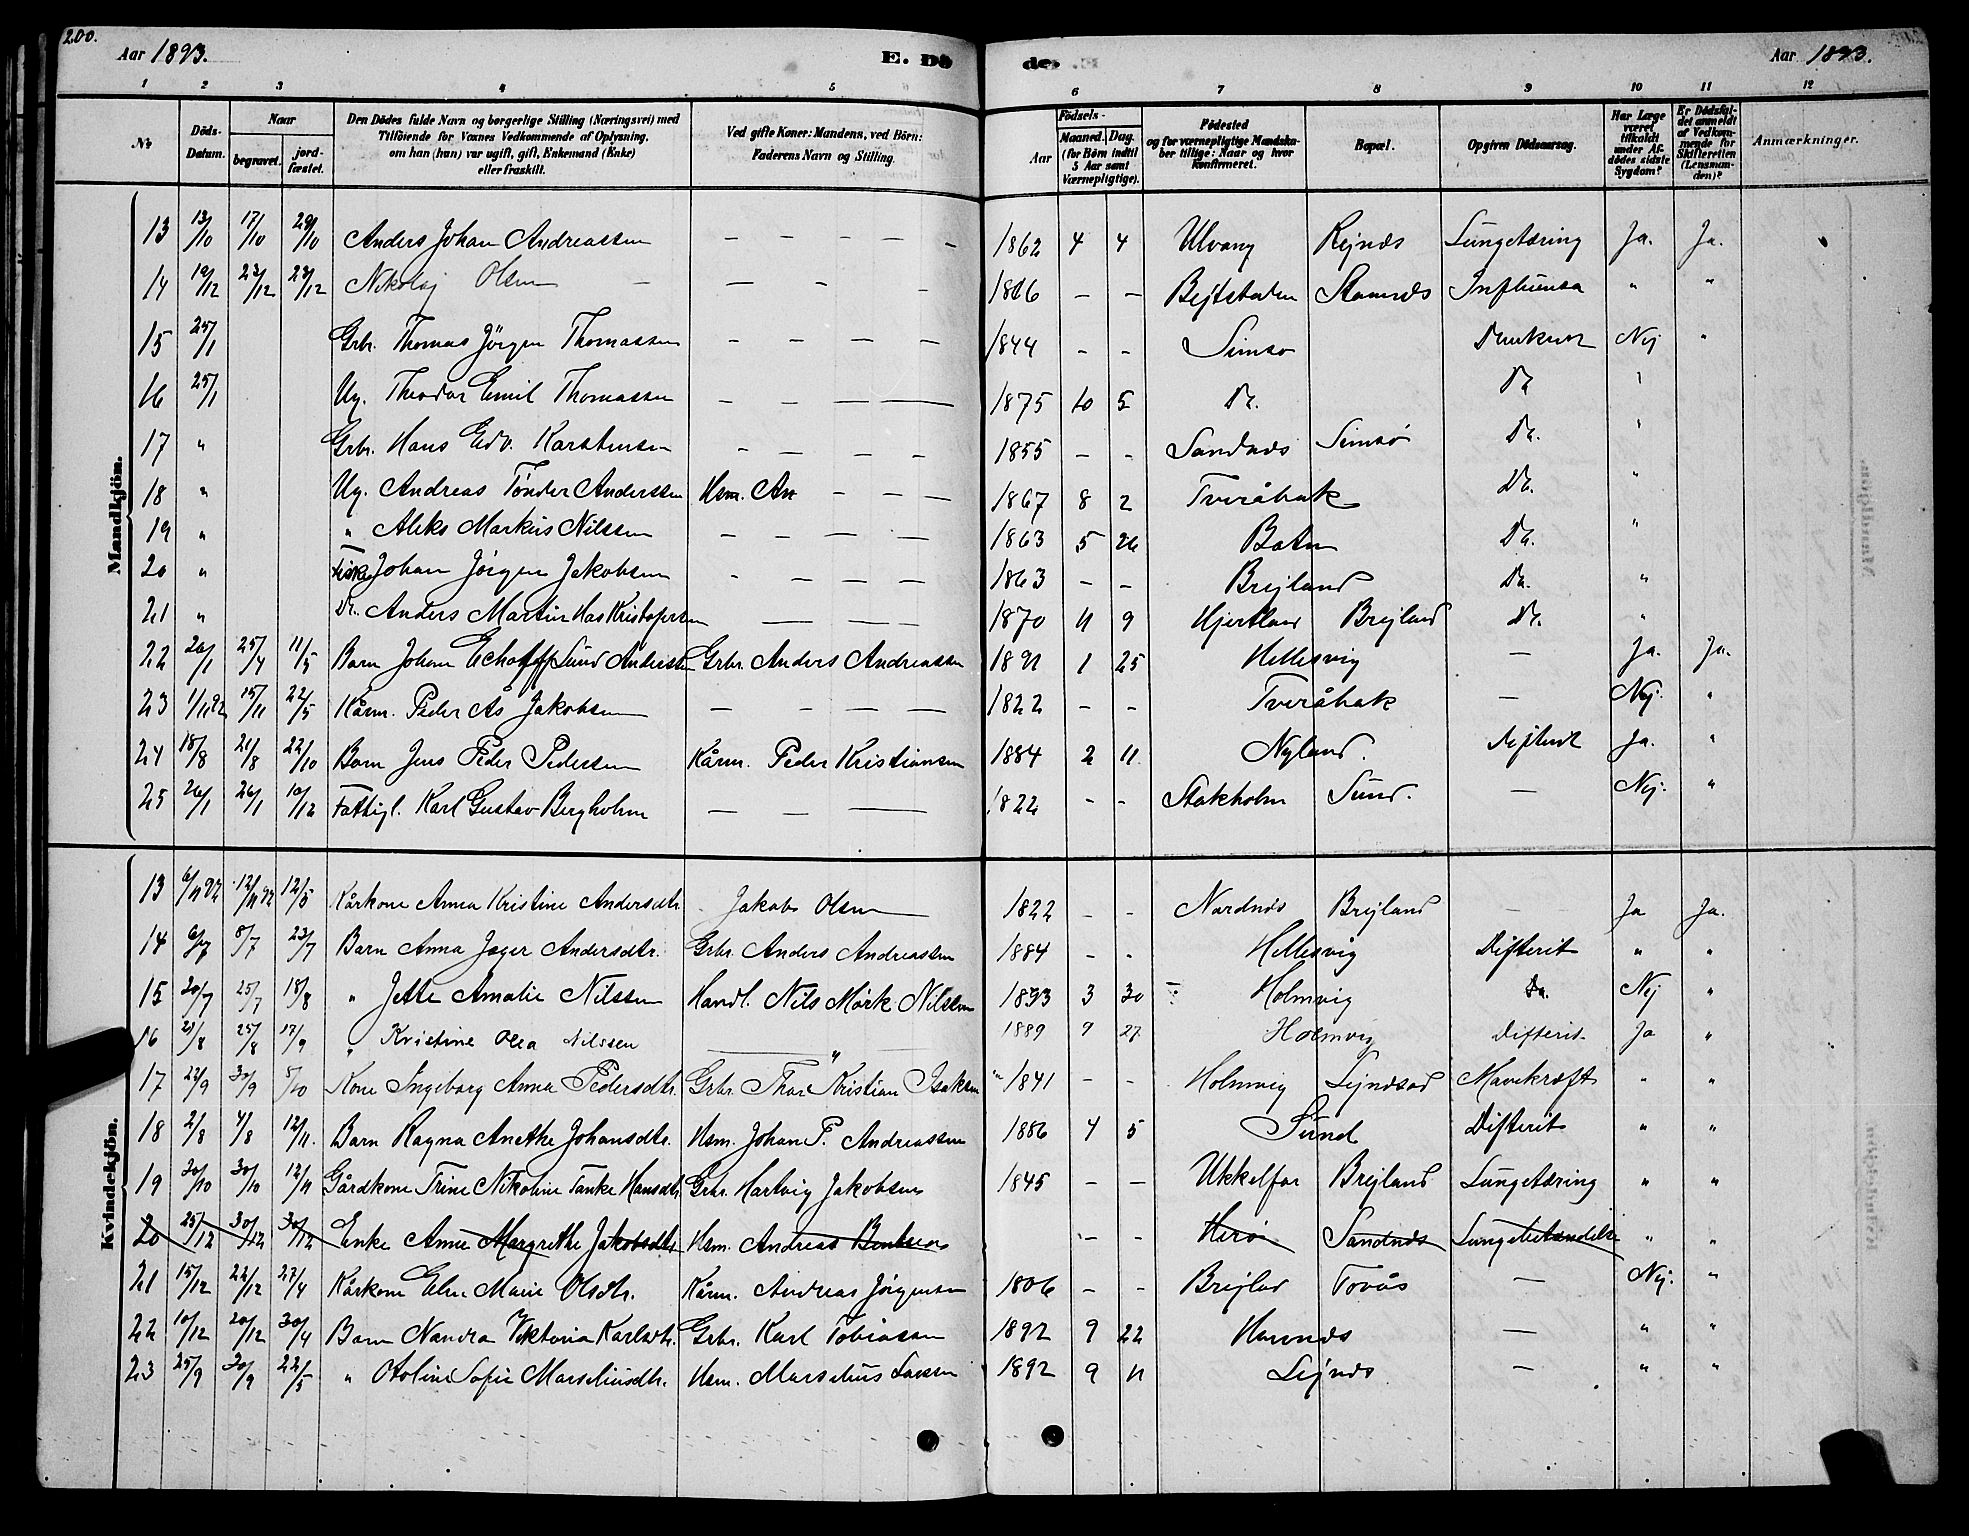 200.
Aar 1893.
E. Dö
de.
Aar 1893.
1 2 3 4 5 6 7 8 9 10 11 12
No
Döds-Datum.
Naar
begravet.
jord-fæstet.
Den Dödes fulde Navn og borgerlige Stilling (Næringsvei) med
Tilföiende for Voxnes Vedkommende af Oplysning,
om han (hun) var ugift, gift, Enkemand (Enke)
eller fraskilt.
Ved gifte Koner: Mandens, ved Börn:
Faderens Navn og Stilling.
Födsels-
Aar
Maaned.
Dag.
(for Börn indtil
5 Aar samt
Værnepligtige).
Födested
og for værnepligtige Mandska-
ber tillige: Naar og hvor
konfirmeret.
Bopæl.
Opgiven Dödsaarsag.
Har Læge
været
tilkaldt
under Af-
dödes sidste
Sygdom?
Er Dödsfal-
det anmeldt
af Vedkom-
mende for
Skifteretten
(Lensman-
den)?
Anmærkninger.
Mandkjön.
13 13/10 17/10 29/10 Anders Johan Andreassen – – – – – 1862 4 4 Ulvang Rejnæs Lungetæring Ja. Ja.
14 19/12 23/12 23/12 Nikolaj Olsen – – – – 1816 – – Bejtstaden Stamnæs Influensa " "
15 25/1 Grbr. Thomas Jörgen Thomassen – – – – 1844 – – Simsø Druknet Nej "
16 25/1 Ug. Theodor Emil Thomassen – – – – 1875 10 5 Do. Do. "
17 " Grbr. Hans Edv. Karstensen – – – – 1855 – – Sandnæs Simsø Do. "
18 " Ug. Andreas Tønder Anderssen Hsm. An – – – 1867 8 2 Tveråbak Do. "
19 " " Aleks Markus Nilssen – – – – 1863 5 26 Botn Do. "
20 " Fisker Johan Jörgen Jakobsen – – – – 1863 – – Brejland Do. "
21 " Do. Anders Martin Has Kristofersen – – – 1870 11 9 Hjertland Brejland Do. "
22 20/1 25/4 11/5 Barn Johan Echoff Sund Anderssen Grbr. Anders Andreassen 1891 1 25 Hellesvig – Ja. Ja.
23 1/11 92 15/11 22/5 Kårm. Peder Ås Jakobsen – – – – 1822 – – Tveråbak – Nej. "
24 18/8 21/8 22/10 Barn Jens Peder Pedersen Kårm. Peder Kristiansen 1884 2 11 Nyland. Difterit Ja. "
25 26/1 26/1 10/12 Fattigl. Karl Gustav Bergholm – – – 1822 – – Stokholm Sund. – Nej. "
Kvindekjön.
13 6/11 92 12/11 92 12/5 Kårkone Anna Kristine Andersdtr. Jakob Olsen 1822 – – Nordnæs Brejland – Ja Ja.
14 6/7 8/7 23/7 Barn Anna Jager Andersdtr. Grbr. Anders Andreassen 1884 – – Hellesvig Difterit " "
15 20/7 25/7 18/8 " Jette Amalie Nilssen Handl. Nils Mörk Nilssen 1893 3 30 Holmvig Do. Nej "
16 21/8 25/8 17/9 " Kristine Olea Nilssen " 1889 9 27 Holmvig Difterit Ja "
17 22/9 30/9 5/10 Kone Ingeborg Anna Pedersdtr. Grbr. Thor Kristian Isaksen 1841 – – Holmvig Lejnæsod Mavekræft " "
18 2/8 4/8 12/11. Barn Ragna Anethe Johansdtr. Hsm. Johan P. Andreassen 1886 4 5 Sund Difterit " "
19 20/10 30/10 12/11 Gårdkone Trine Nikoline Tanke Hansdtr. Grbr. Hartvig Jakobsen 1845 – – Ukkelfor Brejland Lungetæring " "
20 25/12 30/12 30/12 Enke Anne Margrethe Jakobsdtr. Hsm. Andreas – – Herö Sandnæs Lungebetændelse " "
21 15/12 22/12 27/4 Kårkone Elen Marie Olsdtr. Kårm. Andreas Jörgensen 1806 – – Brejlad Tovås – Nej. "
22 10/12 20/12 30/4 Barn Nandra Viktoria Karlsdtr. Grbr. Karl Tobiassen 1892 9 22 Hamnæs – " "
23 25/9 30/9 22/5 " Otoline Sofie Marseliusdtr. Hsm. Marselius Larsen 1892 9 11 Lejnæs – " "